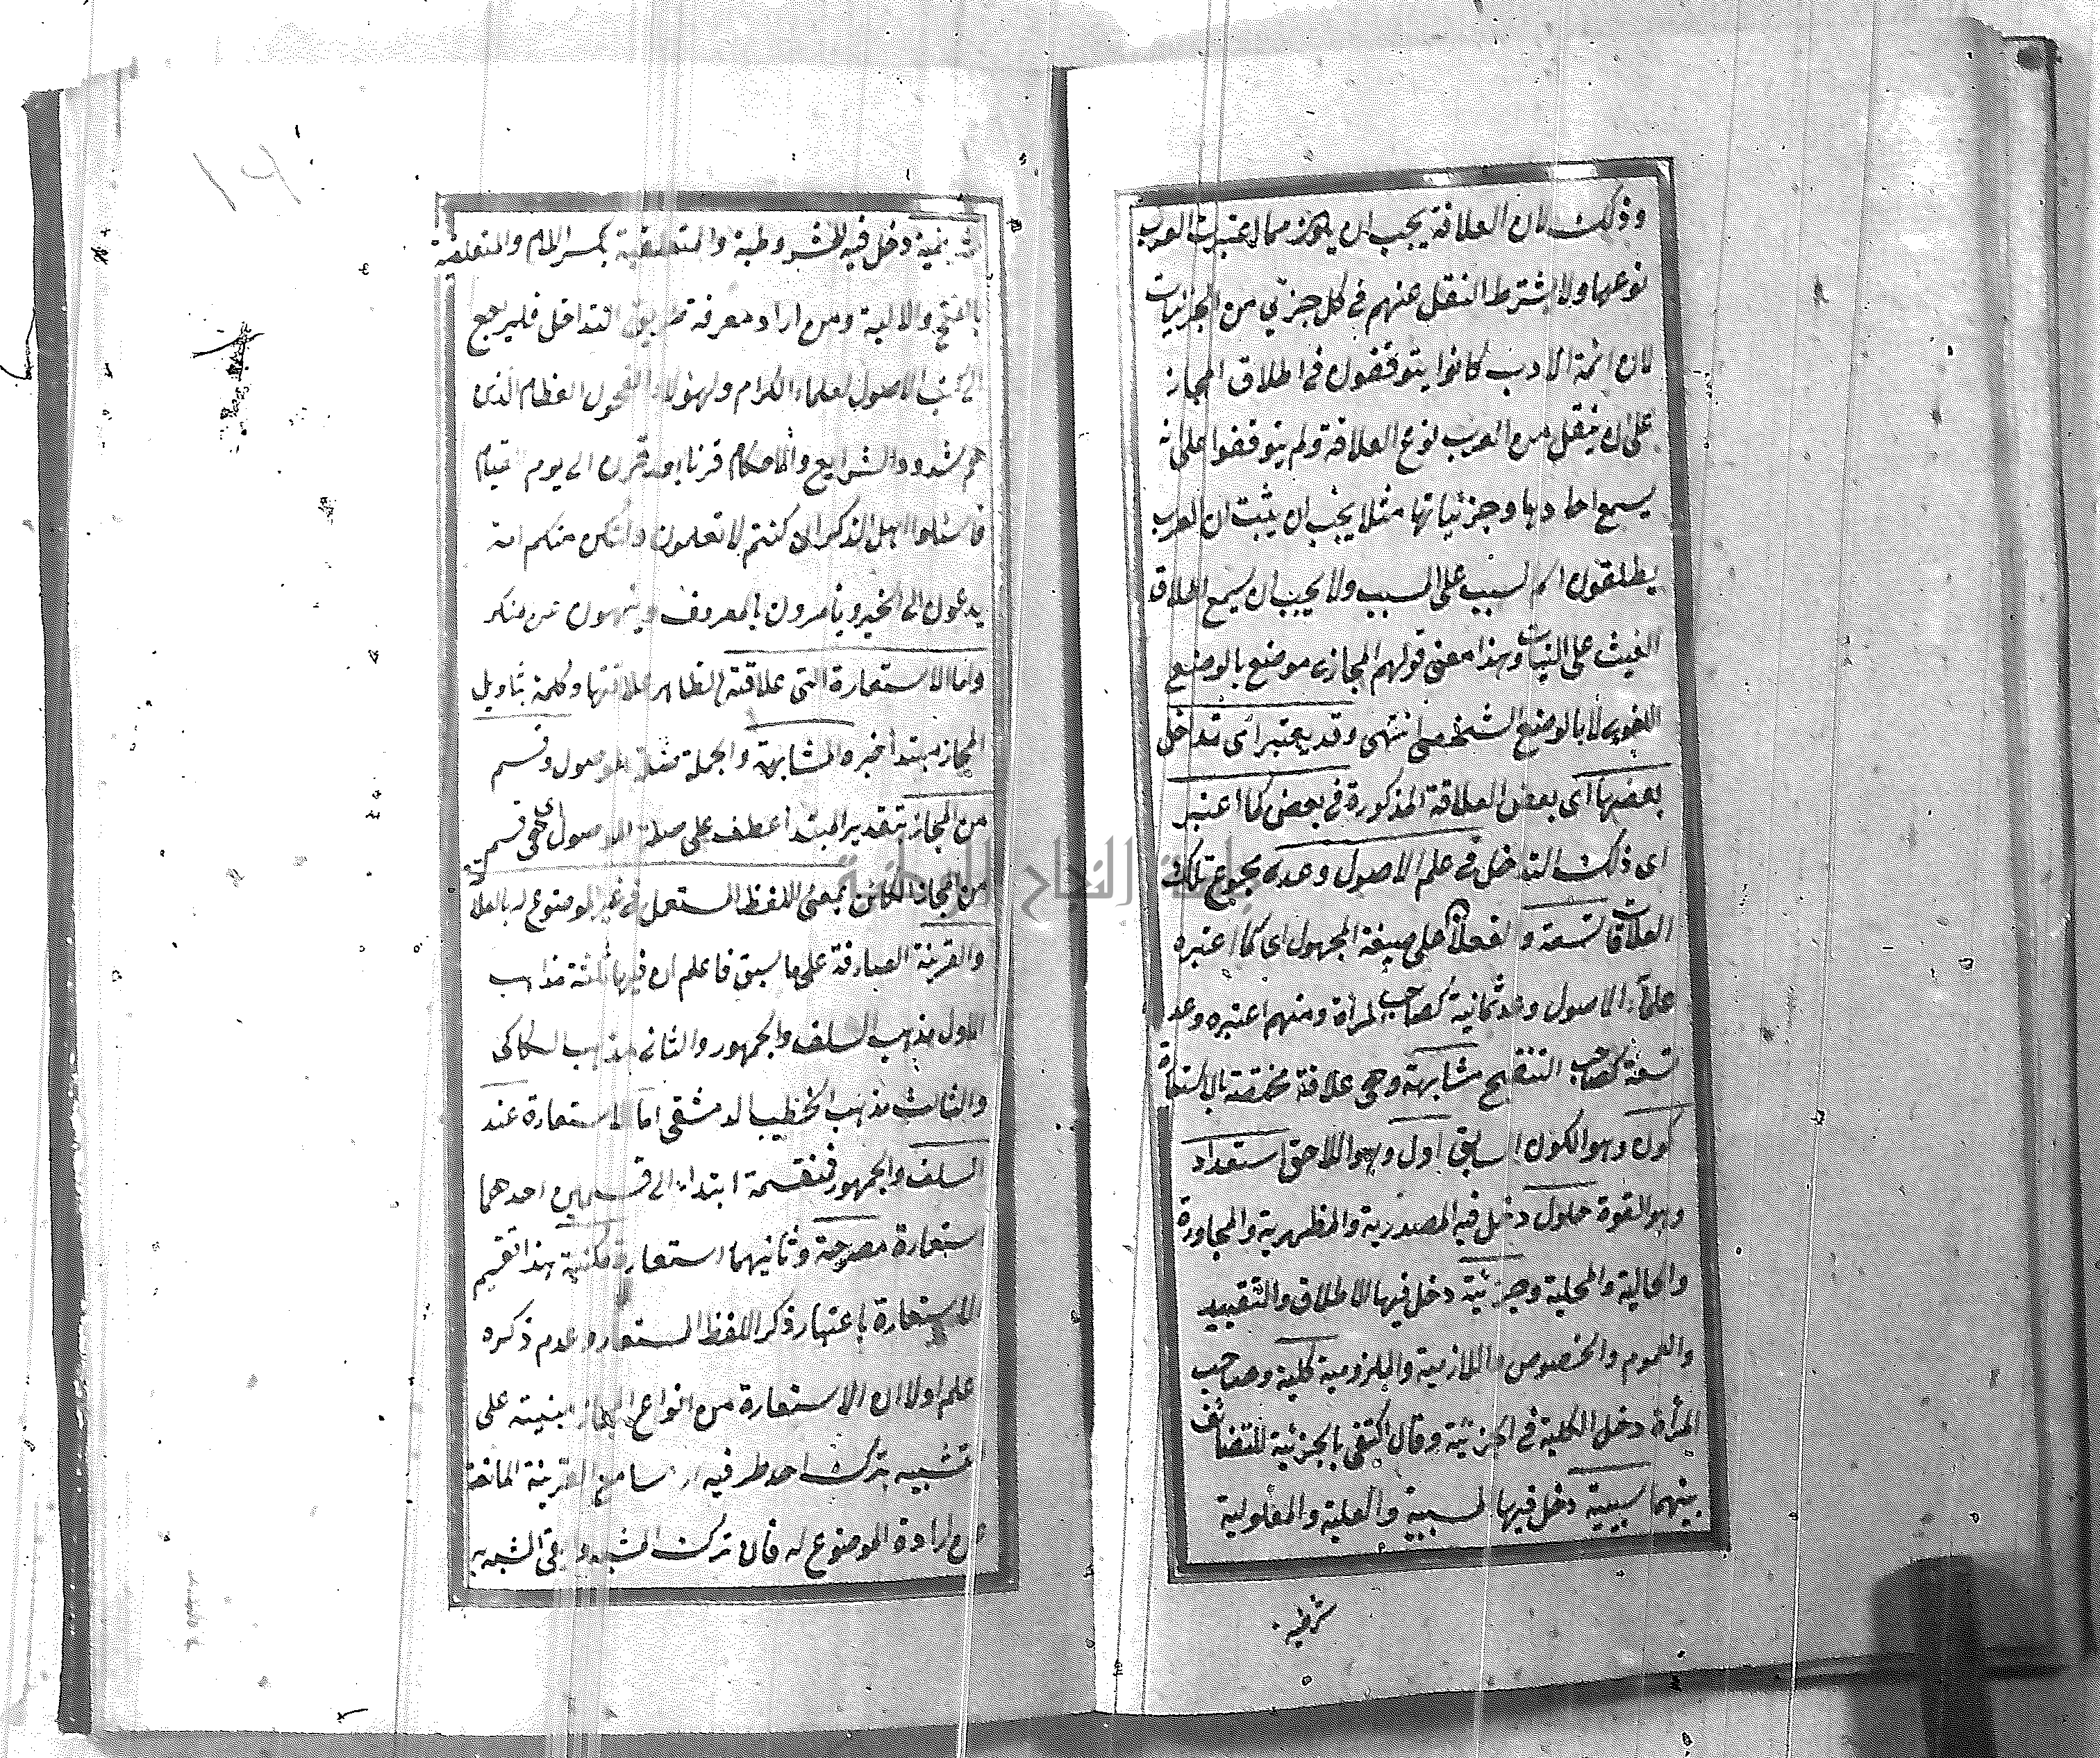 وذلك لان العلاقة يجب ان يكون مما اعتبرت العرب
نوعها ولا يشترط النقل عنهم في كل جزئي من الجزئيات
لان ائمة الادب كانوا يتوقفون في اطلاق المجاز
على ان ينقل من العرب نوع العلاقة ولم يتوقفوا على انه
يسمع احادها وجزئياتها مثلا يجب ان يثبت ان العرب
يطلقون اسم السبب على المسبب ولا يجب ان يسمع اطلاق
الغيث على النبات وهذا معنى قولهم المجازى موضع بالوضع
لا بالوضع الشخصي انتهى وقد يعتبر اى تداخل
بعضها اى بعض العلاقة المذكورة في بعض كما اعتبر
اى ذلك التداخل في علم الاصول وعده مجموع تلك
العلاقات تسعة على صيغة المجهول اى كما اعتبره
علماء الاصول وعد ثمانية كصاحب المرأة ومنهم اعتبره وعد
تسعة كصاحب التنقيح مشابهة وهى علاقة مختصة بالاستعارة
كون وهو الكون السابق اول وهو اللاحق استعداد
وهو القوة حلول دخل فيه المصدرية والمظهرية والمجاورة
والحالية والمحلية وجزئية دخل فيها الاطلاق والتقييد
والعموم والخصوص واللازمية والملزومية كلية وصاحب
المرأة دخل الكلية في الجزئية وقال اكتفى بالجزئية للتضايف
بينهما سببية دخل فيها المسببية والعلية والمعلولية
شرطية
دخل فيه المشروطية والمتعلقية بكسر اللام والمتعلقية
بالفتح والالية ومن اراد معرفة طريق التداخل فليرجع
الى كتب الاصول لعلماء الكرام ولهؤلاء الفحول العظام الذى
والشرايع والاحكام قرنا بعد قرن الى يوم القيام
فاسئلوا اهل الذكر ان كنتم لا تعلمون ولتكن منكم امة
يدعون الى الخير ويأمرون بالمعروف وينهون عن منكر
واما الاستعارة التى علاقته الظاهر علاقتها وكلمة بتاويل
المجاز مبتدأ خبره المشابهة والجملة صلة الموصول وقسم
من المجاز بتقدير المبتدأ عطف على صلة الموصول اى هى قسم
من مجاز الكائن بمعنى اللفظ المستعمل في غير الموضوع له بالعلا
والقرينة الصارفة على ما سبق فاعلم ان فيها ثلثة مذاهب
الاول مذهب السلف والجمهور والثانى مذهب السكاكى
والثالث مذهب الخطيب الدمشقى اما الاستعارة عند
السلف والجمهور فمنقسمة ابتداء الى قسمين احدهما
استعارة مصرحة وثانيهما استعارة مكنية هذا تقسيم
الاستعارة باعتبار ذكر اللفظ المستعار وعدم ذكره
علم اولا ان الاستعارة من انواع المجاز مبنية على
تشبيه بترك احد طرفيه مع القرينة المانعة
عن ارادة الموضوع له فان ترك المشبه وبقى المشبه به